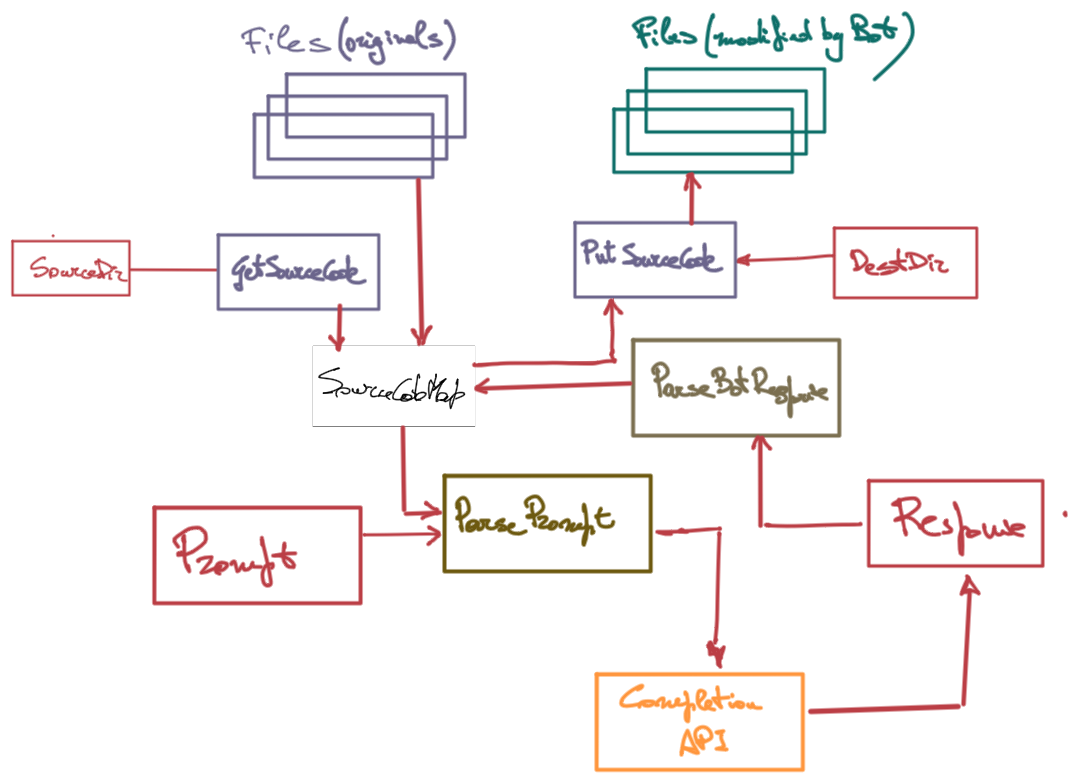 Files (originals)
Files (modified by Bot)
SourceDir
GetSourceCode
PutSourceCode
DestDir
SourceCodeMap
ParseBotResponse
Prompt
ParsePrompt
Response
Completion
API